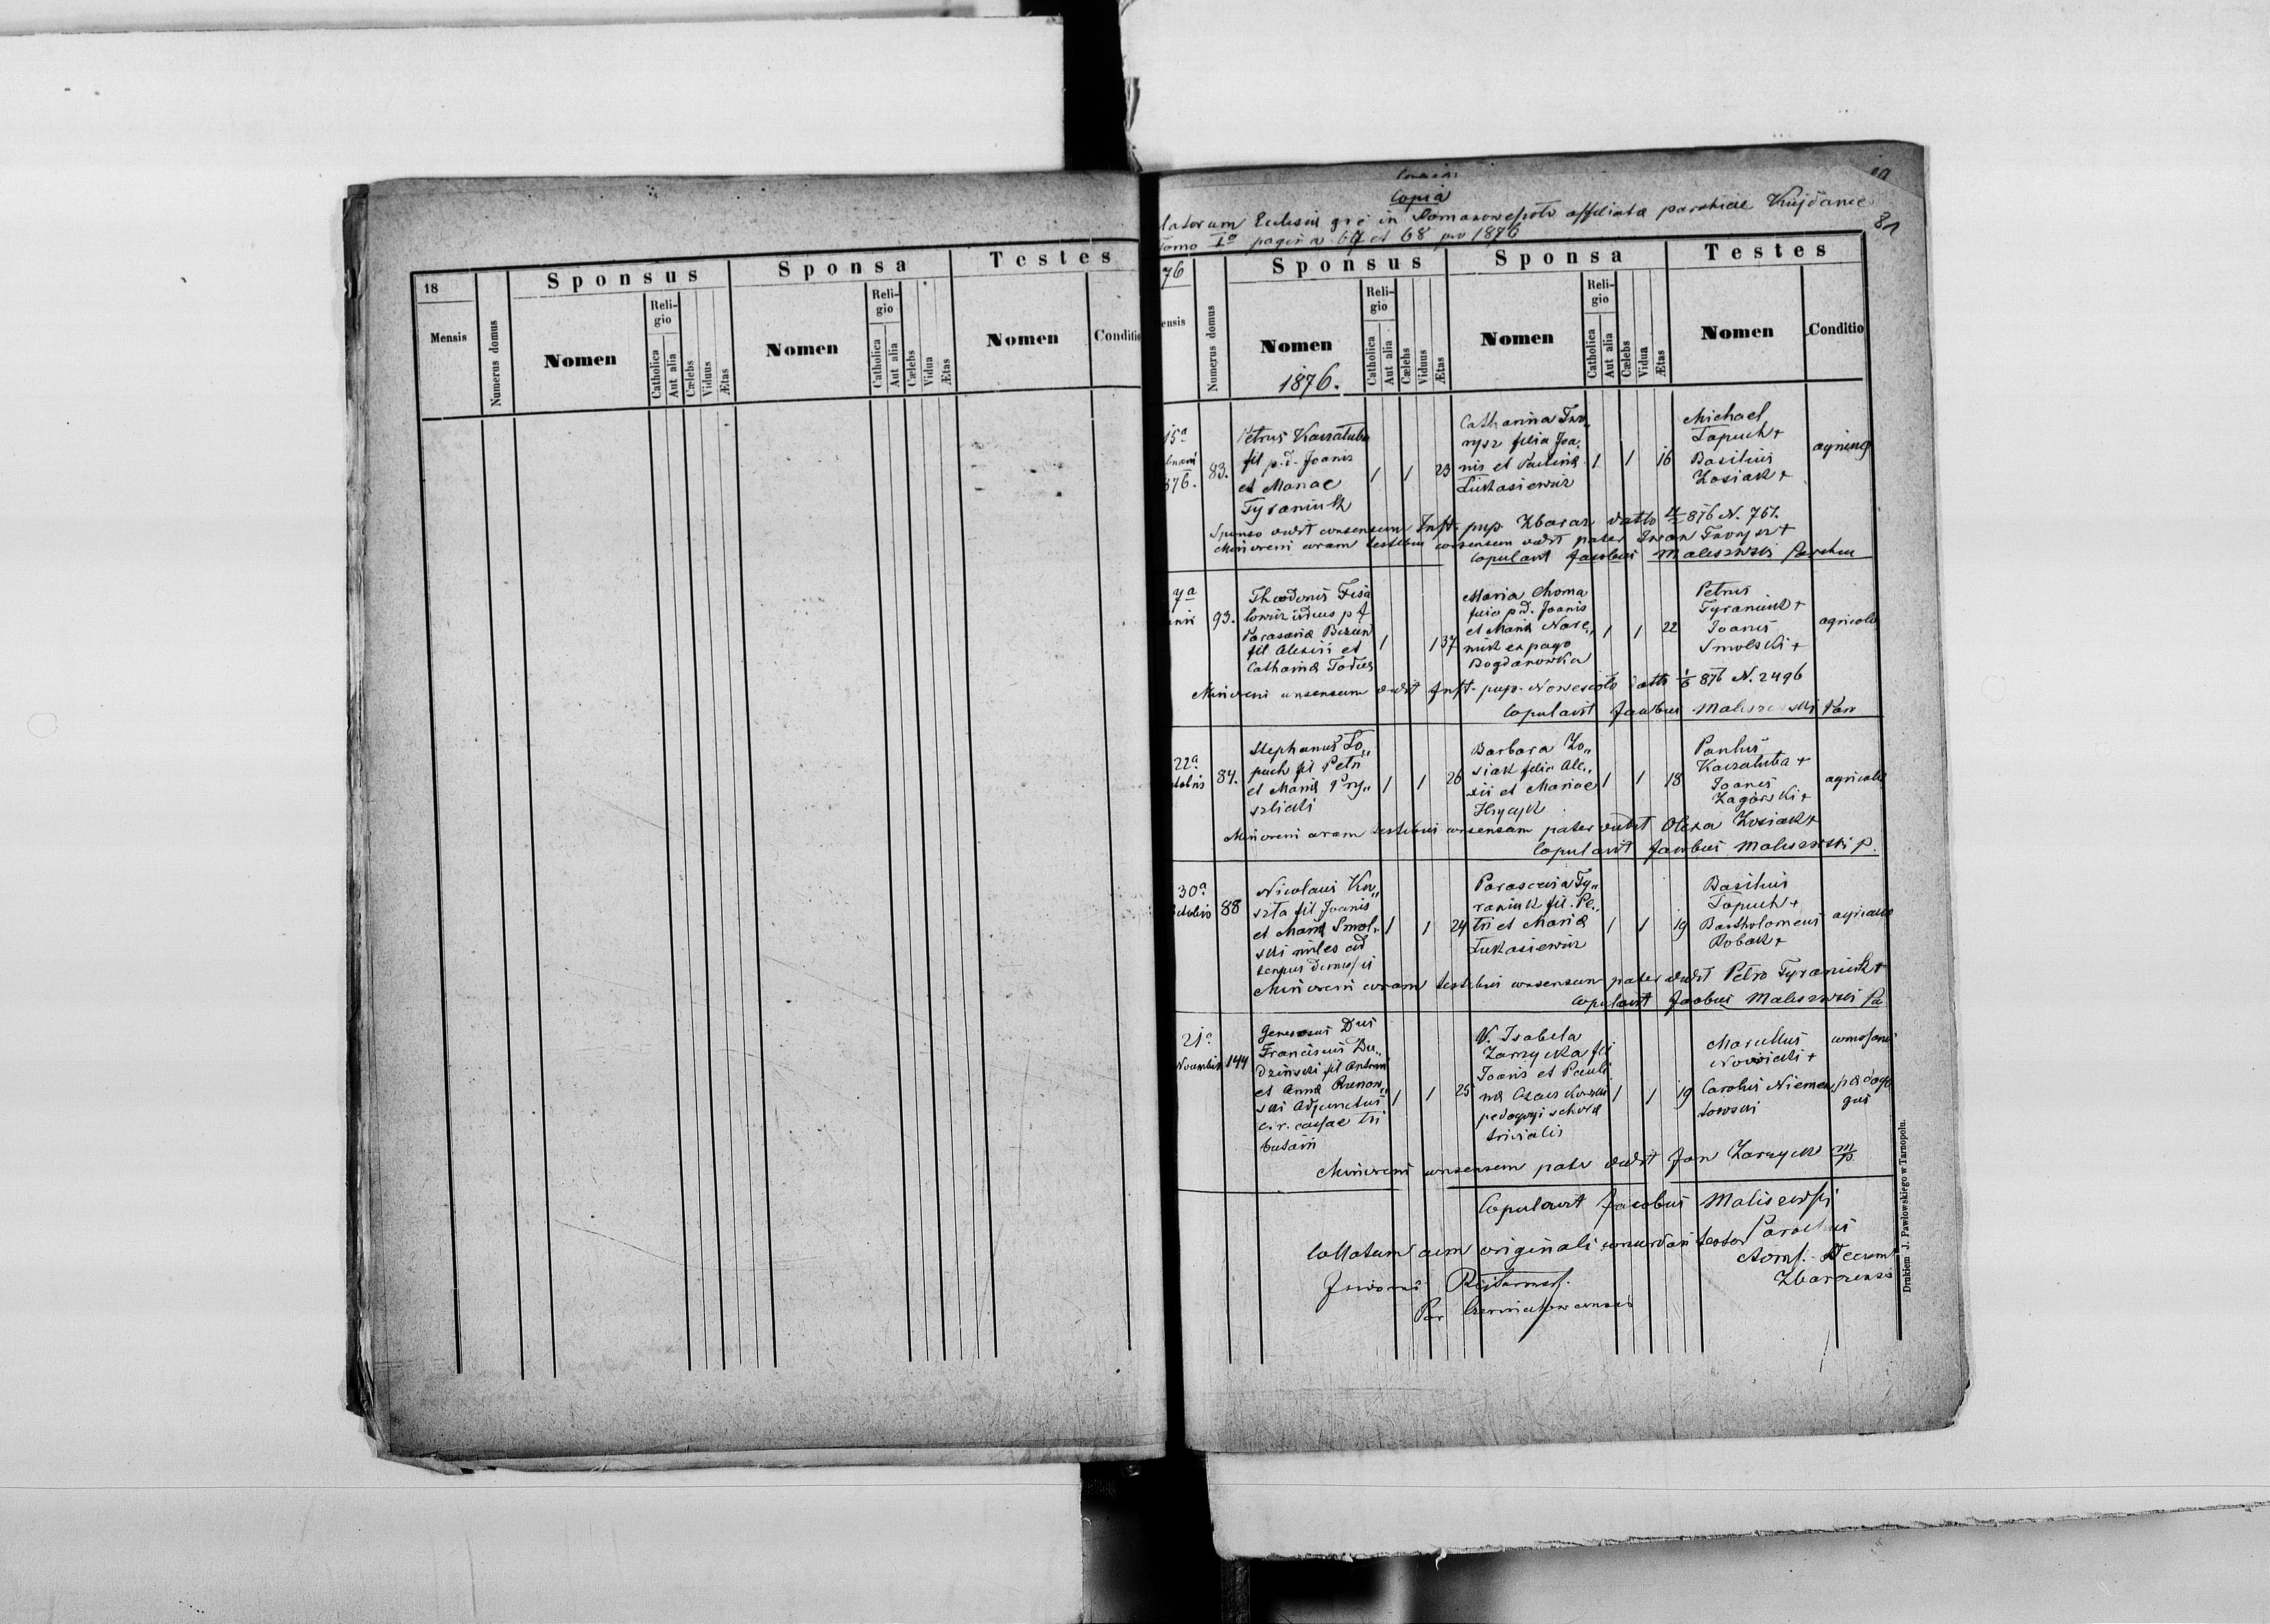 18
Mensis
Numerus domus
Sponsus
Nomen
Religio
Catholica
Aut alia
Cælebs
Viduus
Ætas
Sponsa
Nomen
Religio
Catholica
Aut alia
Cælebs
Vidua
Ætas
Testes
Nomen
Conditio
Copia
latorum Eclesiæ in affiliata parochiae Kujdance
Tomo I pagina 67 et 68 pro 1876
81
76
ensis
Numerus domus
Sponsus
Nomen
1876.
Religio
Catholica
Aut alia
Cælebs
Viduus
Ætas
Sponsa
Nomen
Religio
Catholica
Aut alia
Cælebs
Vidua
Ætas
Testes
Nomen
Conditio
15a
876.
83.
Petrus Kaczaluba
fil p.d. Joanis
et Mariae
Tyraniuk
1 1 23
Catharina Iwa„
nysz filia Joa„
nis et Paulina
Łukasiewicz
1 1 16
Michael
Łopuch +
Basilius
Zosiak +
Sponso dedit consensum Inst. pup. Zbaraz datto 876 N. 761.
Minoreni coram testibus consensum dedit pater Iwan
Copulavit Jacobus Maliszewski Parochus
7a
93.
Theodorus
viduus p f
fil Alexii et
Catharina
1 1 37
Maria Choma
filia p.d. Joanis
et Maria
ex pago
Bogdanowka
1 1 22
Petrus
Tyraniuk +
Joanes
Smolski +
agricola
Minoreni consensum dedit Inst. pup. Nowesioło datto 1/6 876 N. 2496
Copulavit Jacobus Maliszewski Par
22a
84.
Stephanus Ło„
puch fil Petri
et Maria Pry„
slicki
1 1 26
Barbara Zo„
siak filia Ale„
xii et Mariae
Hrycyk
1 1 18
Paulus
Kaczaluba +
Joanes
Zagórski +
agricola
Minoreni coram testibus consensum pater dedit Olexa Zosiak +
Copulavit Jacobus Maliszewski p.
30a
88
Nicolaus Ku„
szta fil Joanis
et Maria Smol„
ski miles ad
tempus
1 1 24
Parascevia Ty„
raniuk fil. Pe„
tri et Maria
Łukasiewicz
1 1 19
Basilius
Łopuch +
Bartholomeus
Robak +
Minoreni coram testibus consensum pater dedit Petro Tyraniuk +
Copulavit Jacobus Maliszewski Pa
21a
Novembris
144
Generosus Dus
Franciscus Bu„
dziński fil Antonii
et Anna
ski Adjunctus
c.r. cassae tri
butari
1 1 25
V. Isabela
Zarzycka fil
Joanis et Pauli
na
pedagogi schola
trivialis
1 1 19
Marcellus
Nowicki +
Carolus
pædago
gus
Minoreni consensum pater dedit Jan Zarzycki m/p
Copulavit Jacobus Maliszewski
Parochus
Collatum cum originali concordari testor
Zbarazensis
Par
Drukiem J. Pawłowskiego w Tarnopolu.